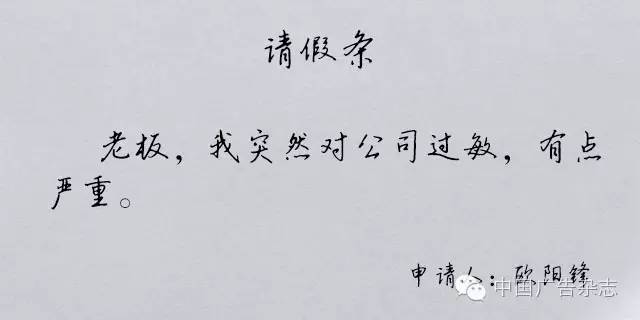 请假条
老板，我突然对公司过敏，有点
严重。
申请人：欧阳锋
中国广告杂志